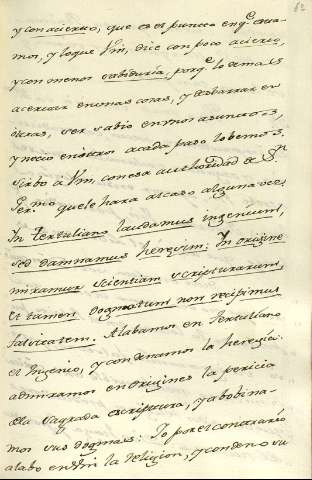 62
y con acierto, que es el punto en q.e esta-
mos, y lo que Vm, dice con poco acierto,
y con menos sabiduría, porq.e lo demas
acertar en unas cosas, y desbarrar en
otras, ser sabio en unos asuntos,
y necio en otros a cada paso lo bemos,
sirbo à Vm, con esa authoridad de S.n
Ger.mo que le hara al caso alguna vez
In Tertuliano laudamus ingenium,
sed damnamus heresim: In origine
miramur scientiam scripturarum,
et tamen dogmatum non recipimus
falsitatem. Alabamos en Tertuliano
el Ingenio, y condenamos la heregia:
admiramos en origines la pericia
de la Sagrada escriptura, y abobina-
mos sus dogmas: Yo por el contrario
alabo en Vm la religion, y condeno su